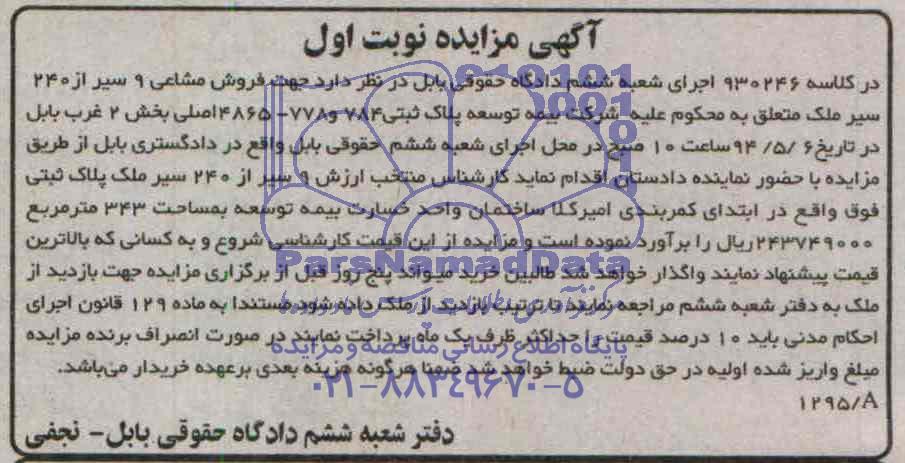 آگهی مزایده نوبت اول
در کلاسه ۹۳۰۲۴۶ اجرای شعبه ششم دادگاه حقوقی بابل در نظر دارد جهت فروش مشاعی ۹ سیر از ۲۴۰
سیر ملک متعلق به محکوم علیه شرکت بیمه توسعه پلاک ثبتی ۷۸۴ و۷۷۸- ۴۸۶۵اصلی بخش ۲ غرب بابل
در تاریخ۶ /۵/ ۹۴ساعت ۱۰ صبح در محل اجرای شعبه ششم حقوقی بابل واقع در دادگستری بابل از طریق
مزایده با حضور نماینده دادستان اقدام نماید کارشناس منتخب ارزش ۹ سیر از ۲۴۰ سیر ملک پلاک ثبتی
فوق واقع در ابتدای کمربندی امیرکلا ساختمان واحد خسارت بیمه توسعه بمساحت ۳۴۳ مترمربع
۲۴۳۷۴۹۰۰۰ریال را برآورد نموده است و مزایده از این قیمت کارشناسی شروع و به کسانی که بالاترین
قیمت پیشنهاد نمایند واگذار خواهد شد طالبین خرید میتواند پنج روز قبل از برگزاری مزایده جهت بازدید از
ملک به دفتر شعبه ششم مراجعه نمایند تا ترتیب بازدید از ملک داده شود مستندا به ماده ۱۲۹ قانون اجرای
احکام مدنی باید ۱۰ درصد قیمت را حداکثر ظرف یک ماه پرداخت نمایند در صورت انصراف برنده مزایده
مبلغ واریز شده اولیه در حق دولت ضبط خواهد شد ضمنا هرگونه هزینه بعدی برعهده خریدار می‌باشد.
۱۲۹۵/A
دفتر شعبه ششم دادگاه حقوقی بابل- نجفی
ParsNamadData
پایگاه اطلاع رسانی مناقصه و مزایده
۰۲۱-۸۸۳۴۹۶۷۰-۵